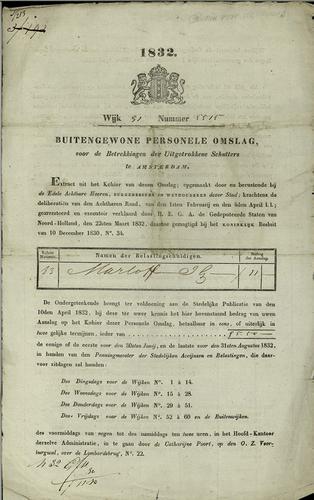 1832.
Wijk 51 Nummer 5515
BUITENGEWONE PERSONELE OMSLAG,
voor de Betrekkingen der Uitgetrokkene Schutters
te AMSTERDAM.
Extract uit het Kohier van dezen Omslag; opgemaakt door en berustende bij
de Edele Achtbare Heeren, BURGEMEESTER EN WETHOUDEREN dezer Stad; krachtens de
deliberatiën van den Achtbaren Raad, van den 1sten Februarij en den 6den April l.l.;
geärresteerd en executoir verklaard door H. E. G. A. de Gedeputeerde Staten van
Noord-Holland, den 22sten Maart 1832, daartoe gemagtigd bij het KONINKLIJK Besluit
van 10 December 1830, N°. 34.
Namen der Belastingschuldigen.
Bedrag der Aanslag.
13 Marloff 11
De Ondergeteekende brengt ter voldoening aan de Stedelijke Publicatie van den
10den April 1832, bij deze ter uwer kennis het hier bovenstaand bedrag van uwen
Aanslag op het Kohier dezer Personele Omslag, betaalbaar in eens, of uiterlijk in
twee gelijke termijnen, ieder van
de eenige of de eerste voor den 30sten Junij, en de laatste voor den 31sten Augustus 1832,
in handen van den Penningmeester der Stedelijken Accijnsen en Belastingen, die daarvoor
zitdagen zal houden:
Des Dingsdags voor de Wijken N°. 1 à 14.
Des Woensdags voor de Wijken N°. 15 à 28.
Des Donderdags voor de Wijken N°. 29 à 51.
Des Vrijdags voor de Wijken N°. 52 à 60 en de Buitenwijken.
des voormiddags van negen tot des namiddags ten twee uren, in het Hoofd-Kantoor
derzelve Administratie, in te gaan door de Catharijne Poort, op den O. Z. Voorburgwal,
over de Lombardsbrug, N°. 22.